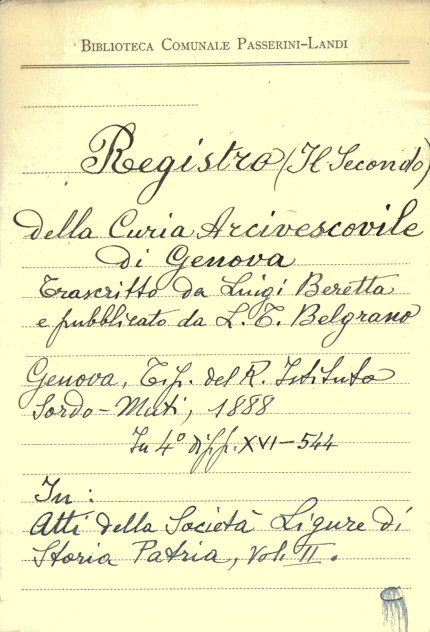 BIBLIOTECA COMUNALE PASSERINI-LANDI
Registro (Il Secondo)
della Curia Arcivescovile
di Genova
Trascritto da Luigi Beretta
e pubblicato da L. T. Belgrano
Genova, Tip. del R. Istituto
Sordo-Muti, 1888
In 4° di pp. XVI-544
In:
Atti della Società Ligure di
Storia Patria, Vol. II.